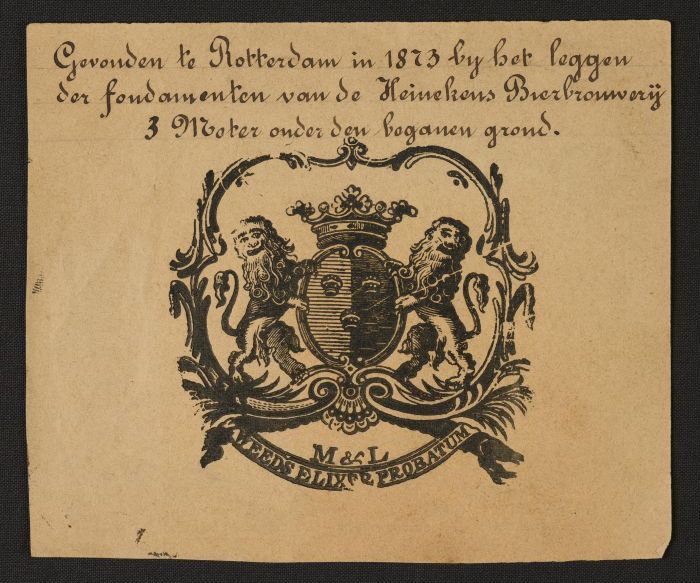 Gevonden te Rotterdam in 1873 by het leggen
der fondamenten van de Heinekens Bierbrouwerÿ
3 Meter onder den beganen grond.
M & L
WEEDS ELIXER PROBATUM